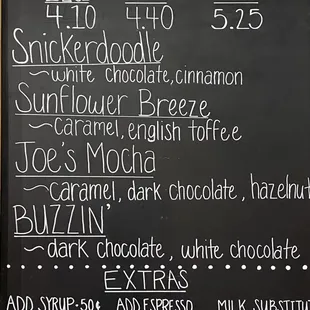 4.10 4.40 5.25
Snickerdoodle
~white chocolate, cinnamon
Sunflower Breeze
~caramel, english toffee
Joe's Mocha
~caramel, dark chocolate, hazelnut
BUZZIN'
~dark chocolate, white chocolate
EXTRAS
ADD SYRUP·50¢ ADD ESPRESSO MILK SUBSTITUT